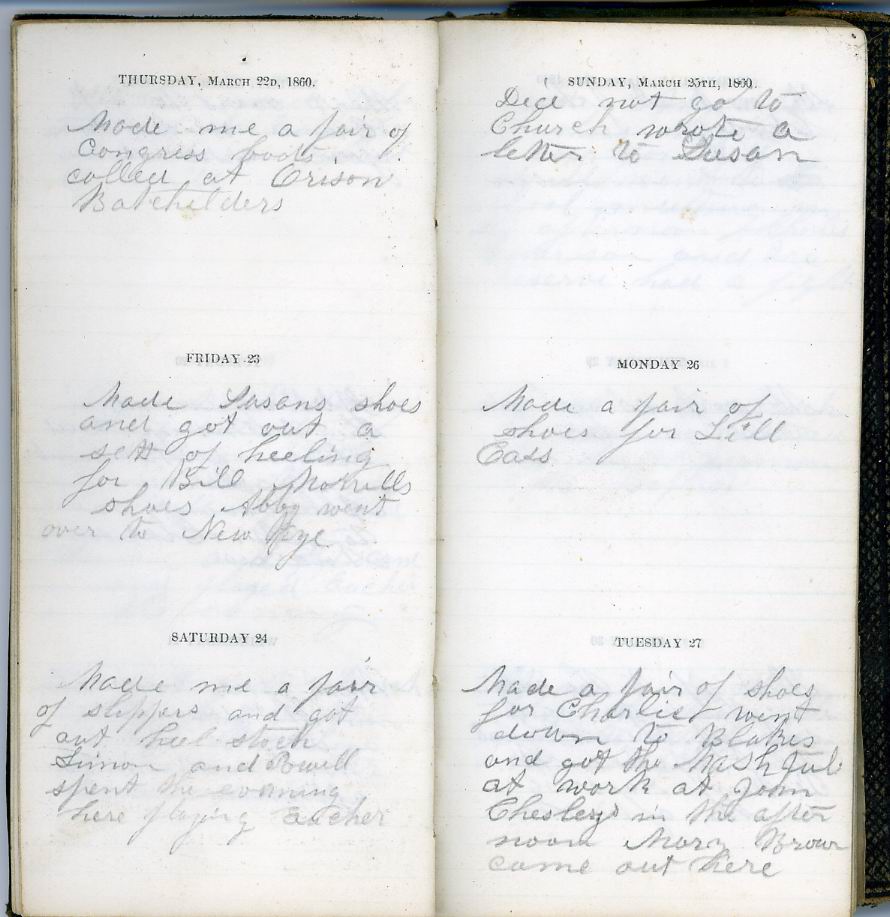 THURSDAY, MARCH 22D, 1860.
Made me a pair of
Congress boots
called at Orison
Batchilders
FRIDAY 23
Made Susans shoes
and got out a
sett of heeling
for Bill
shoes Abby went
over to New Rye
SATURDAY 24
Made me a pair
of slippers and got
out heel stock
Simon and Powell
spent the evening
here playing eucher
SUNDAY, MARCH 25TH, 1860.
Did not go to
Church wrote a
letter to Susan
MONDAY 26
Made a pair of
shoes for Lill
Cass
TUESDAY 27
Made a pair of shoes
for Charlie went
down to Blakes
and got the wash tub
at work at John
Chesleys in the after
noon Mary Brown
came out here